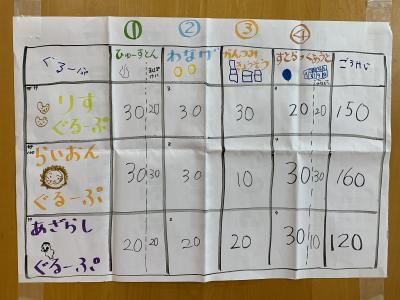 ① ② ③ ④
ぐるーぷ ひゅーすとん わなげ かんつみ すとらっくあうと ごうけい
きょうそう
りす
ぐるーぷ
30 20 30 30 20 20 150
らいおん
ぐるーぷ
30 30 30 10 30 30 160
あざらし
ぐるーぷ
20 20 20 20 30 10 120